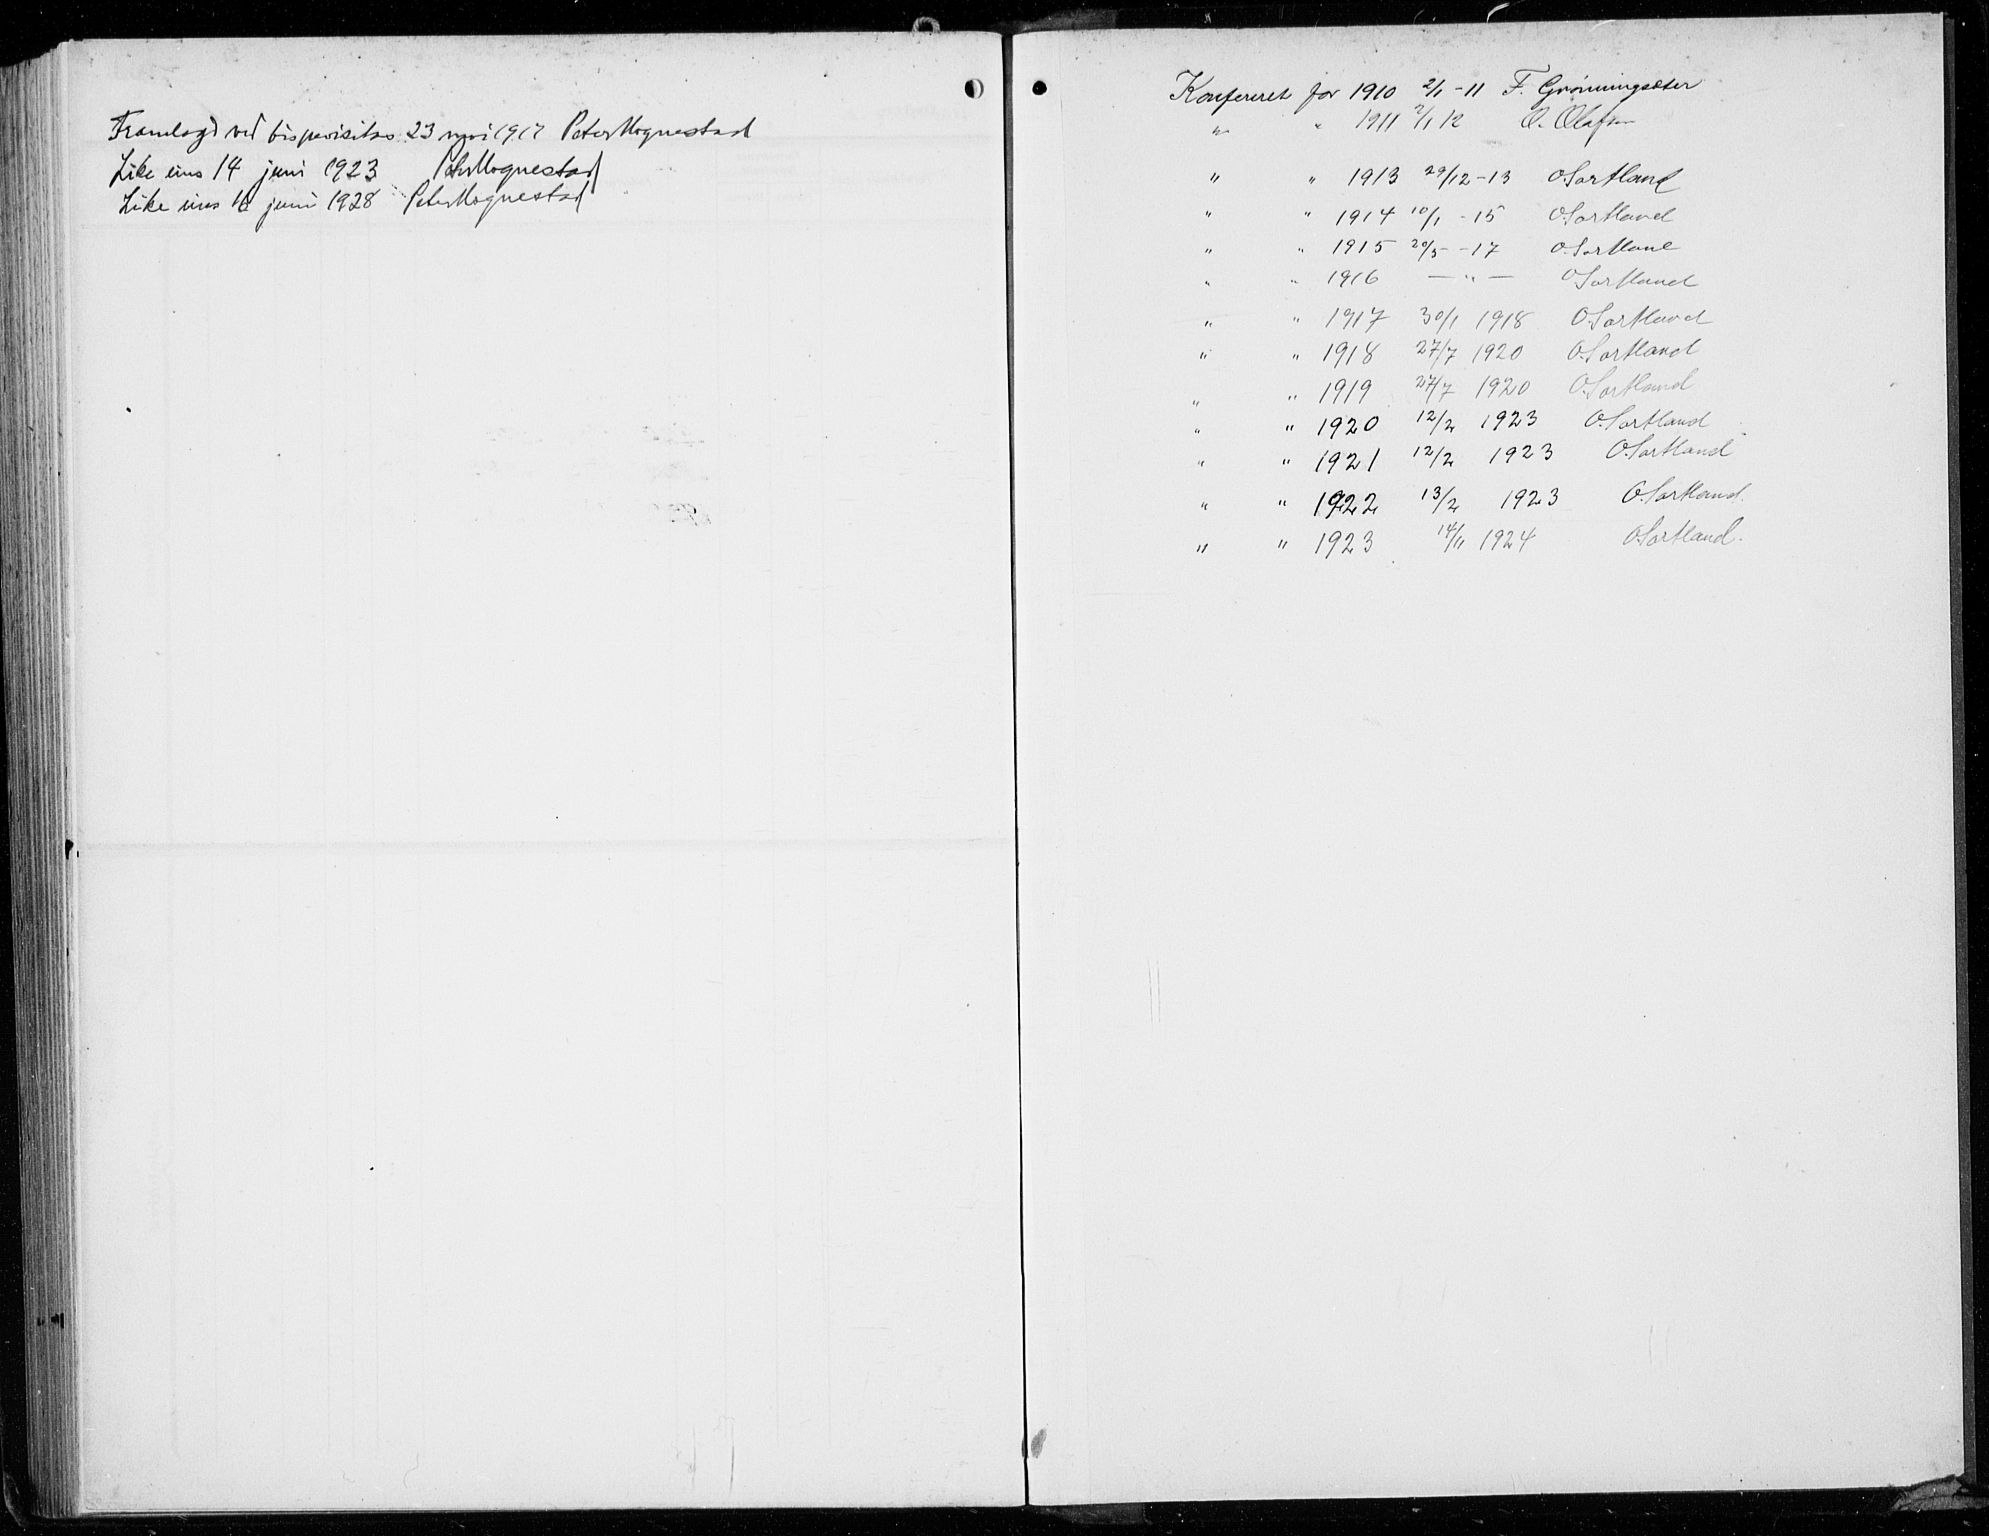 Framlagd ved bispevisitas 23 mai 1917 Peter Hognestad
Like eins 14 juni 1923 Peter Hognestad
Like eins 16 juni 1928 Peter Hognestad
Konfereret for 1910 2/1 -11 F. Grønningsæter
" " 1911 2/1 12 O. Olafsen
" " 1913 29/12 -13 O Sortland
" " 1914 10/1 -15 O. Sortland
" " 1915 20/5 -17 O Sortland
" " 1916 — " — O Sortland
" " 1917 30/1 1918 O Sortland
" " 1918 27/7 1920 O. Sortland
" " 1919 27/7 1920 O. Sortland
" " 1920 12/2 1923 O. Sortland
" " 1921 12/2 1923 O. Sortland
" " 1922 13/2 1923 O. Sortland.
" " 1923 14/11 1924 O Sortland.